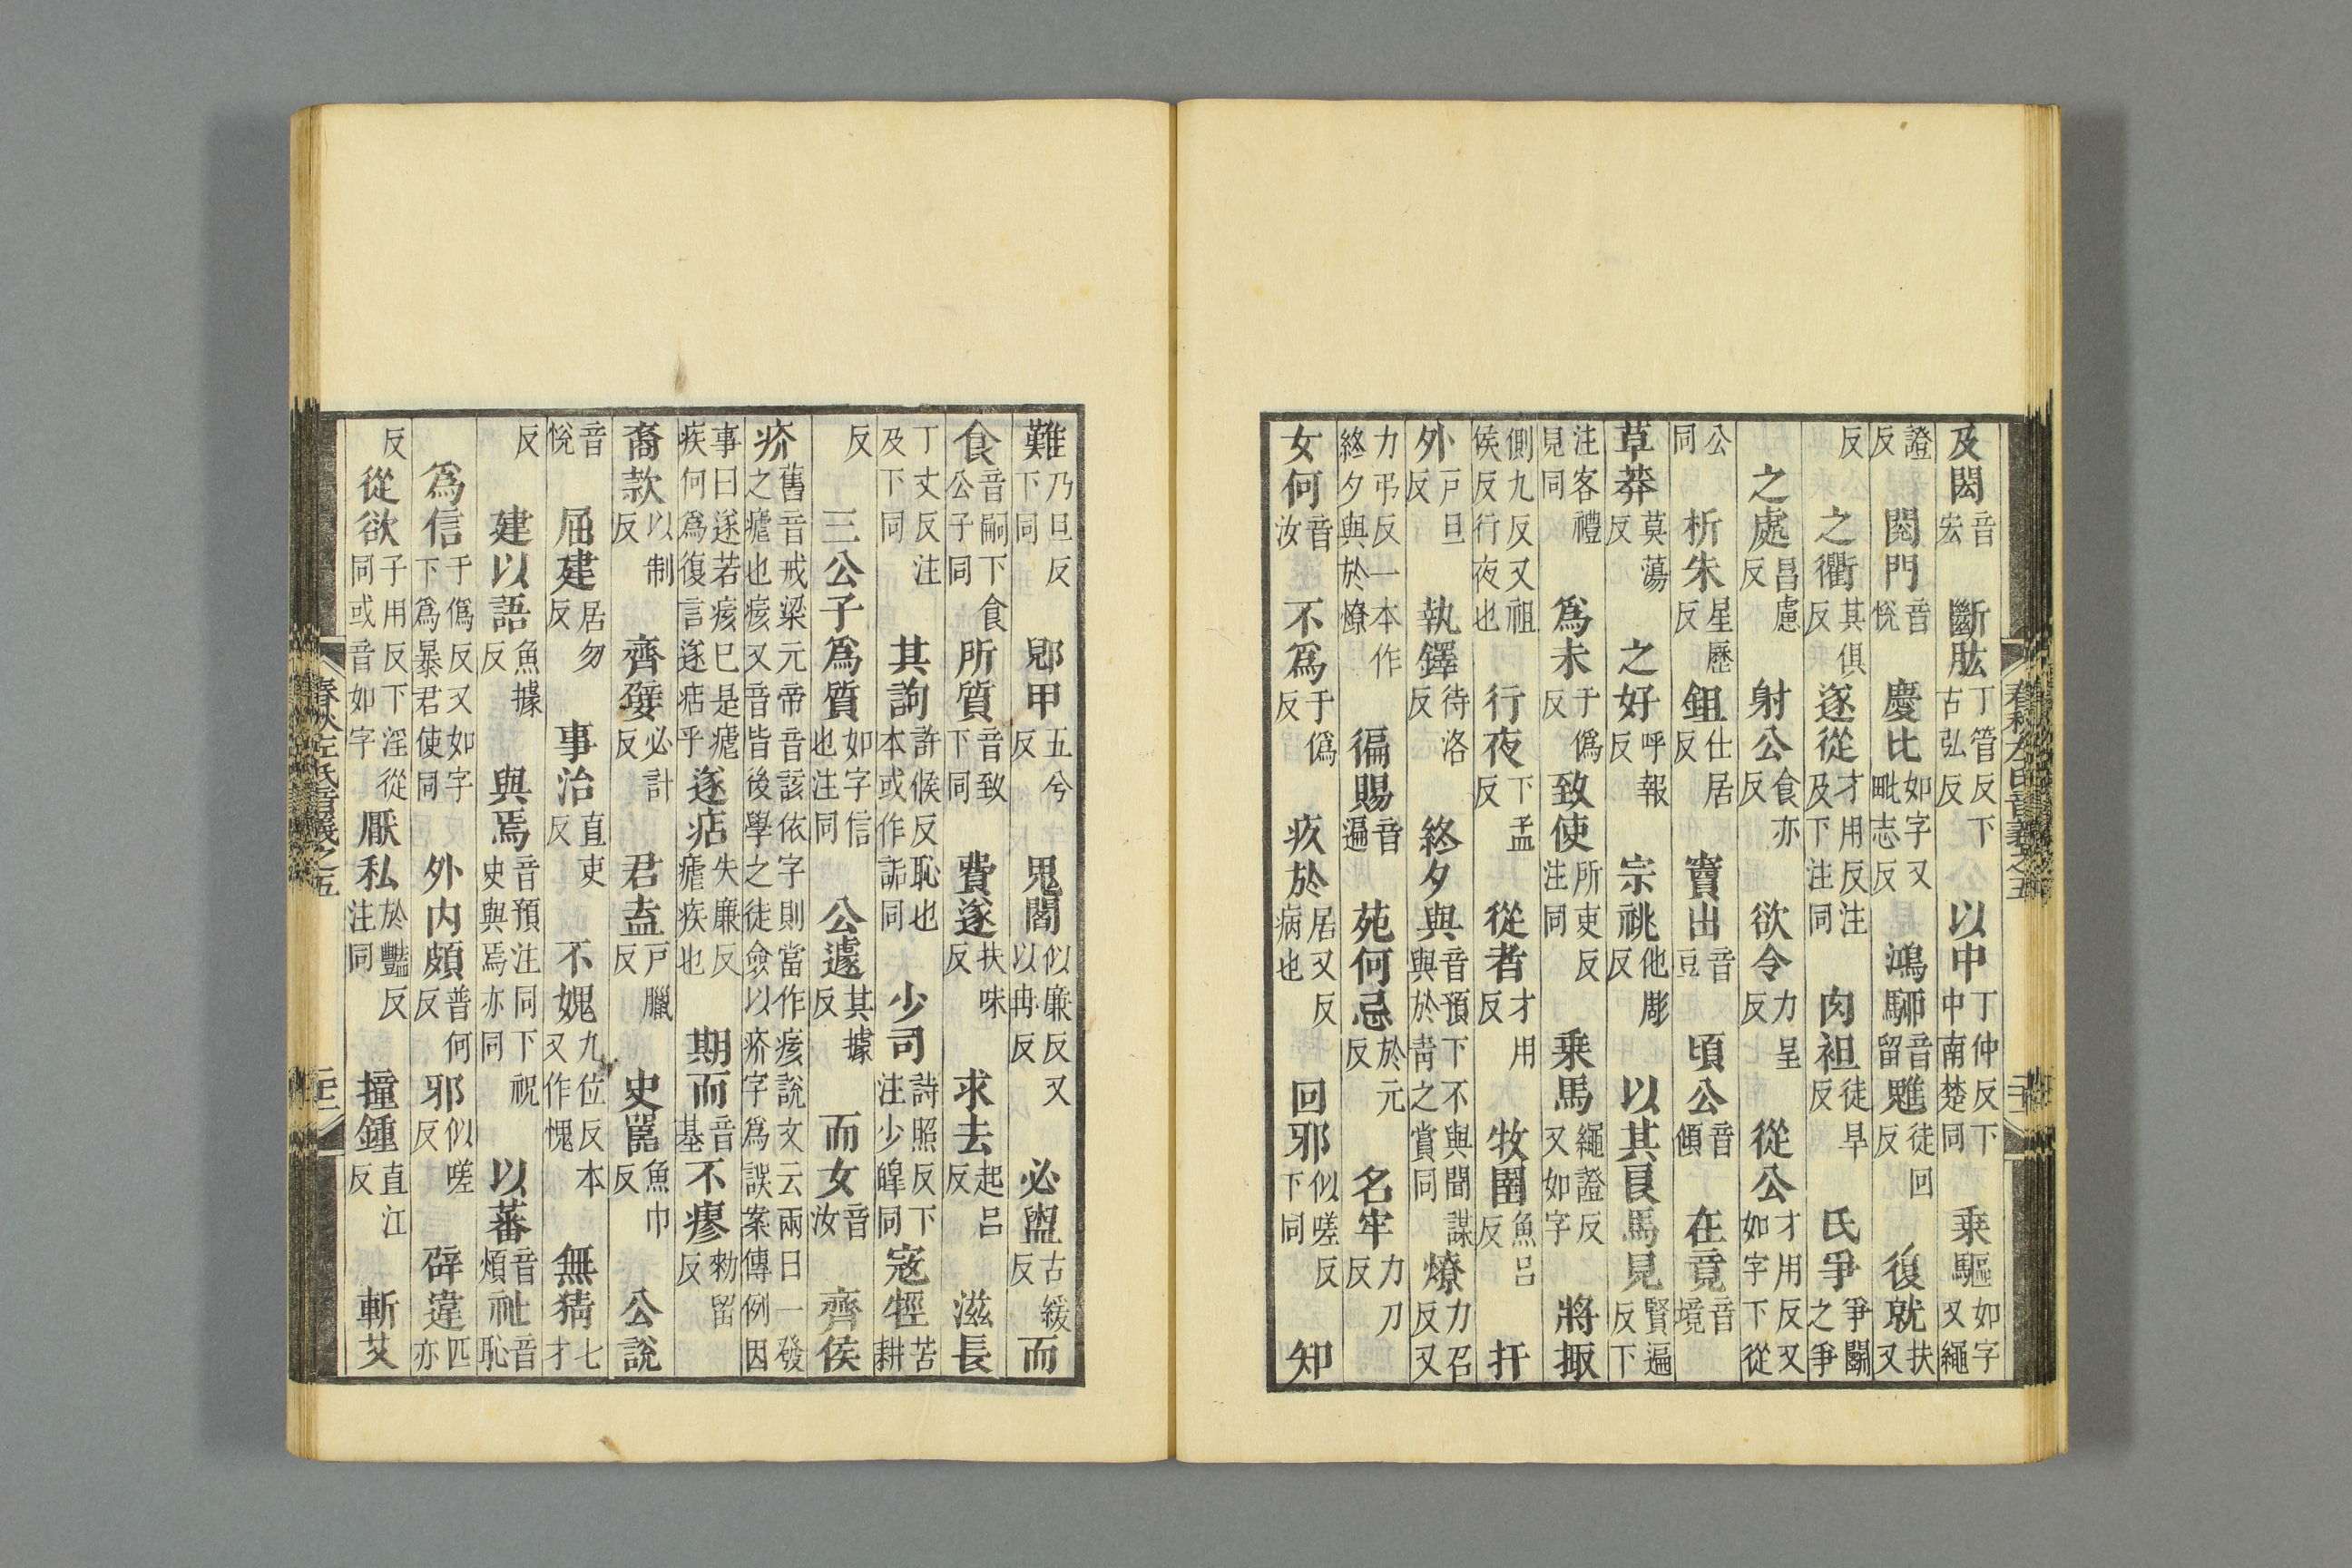 及閎音宏 斷肱丁管反下古弘反 以中丁仲反下中南楚同 乘驅如字又繩
證反 閱門音悅 慶比如字又毗志反 鴻駵音留魋徒回反 復就扶又
反 之衢其俱反 遂從才用反注及下注同 肉袒徒旱反 氏爭爭鬬之爭
之處昌慮反 射公食亦反 欲令力呈反 從公才用反又如字下從
公同 析朱星歷反 鉏仕居反 竇出音豆 頃公音傾 在竟音境
草莽莫蕩反 之好呼報反 宗祧他彫反 以其良馬見賢遍反下
注客禮見同 爲未于僞反 致使所吏反注同 乗馬繩證反又如字 將掫
側九反又祖侯反行夜也 行夜下孟反 從者才用反 牧圉魚呂反 扞
外戸旦反 執鐸待洛反 終夕與音預下不與聞謀與於靑之賞同 燎力召反又
力弔反一本作終夕與於燎 徧賜音遍 苑何忌於元反 名牢力刀反
女何音汝 不爲于僞反 疚於居又反病也 回邪似嗟反下同 知
難乃旦反下同 郳甲五兮反 鬼閻似廉反又以冉反 必盥古緩反 而
食音嗣下食公子同 所質音致下同 費遂扶味反 求去起呂反 滋長
丁丈反注及下同 其詢許候反恥也本或作詬同 少司詩照反下注少皥同 寇牼苦耕
反 三公子爲質如字信也注同 公遽其據反 而女音汝 齊侯
疥舊音戒梁元帝音該依字則當作痎說文云兩日一發之瘧也痎又音皆後學之徒僉以疥字爲誤案傳例因
事曰遂若痎已是瘧疾何爲復言遂痁乎 遂痁失廉反瘧疾也 期而音基 不瘳勑留反
裔款以制反 齊嬖必計反 君盍戸臘反 史嚚魚巾反 公說
音悅 屈建居勿反 事治直吏反 不媿九位反本又作愧 無猜七才
反 建以語魚據反 與焉音預注同下祝史與焉亦同 以蕃音煩祉音恥
爲信于僞反又如字下爲暴君使同 外内頗普何反 邪似嗟反 辟違匹亦
反 從欲子用反下淫從同或音如字 厭私於豔反注同 撞鍾直江反 斬艾
春秋左氏音義之五